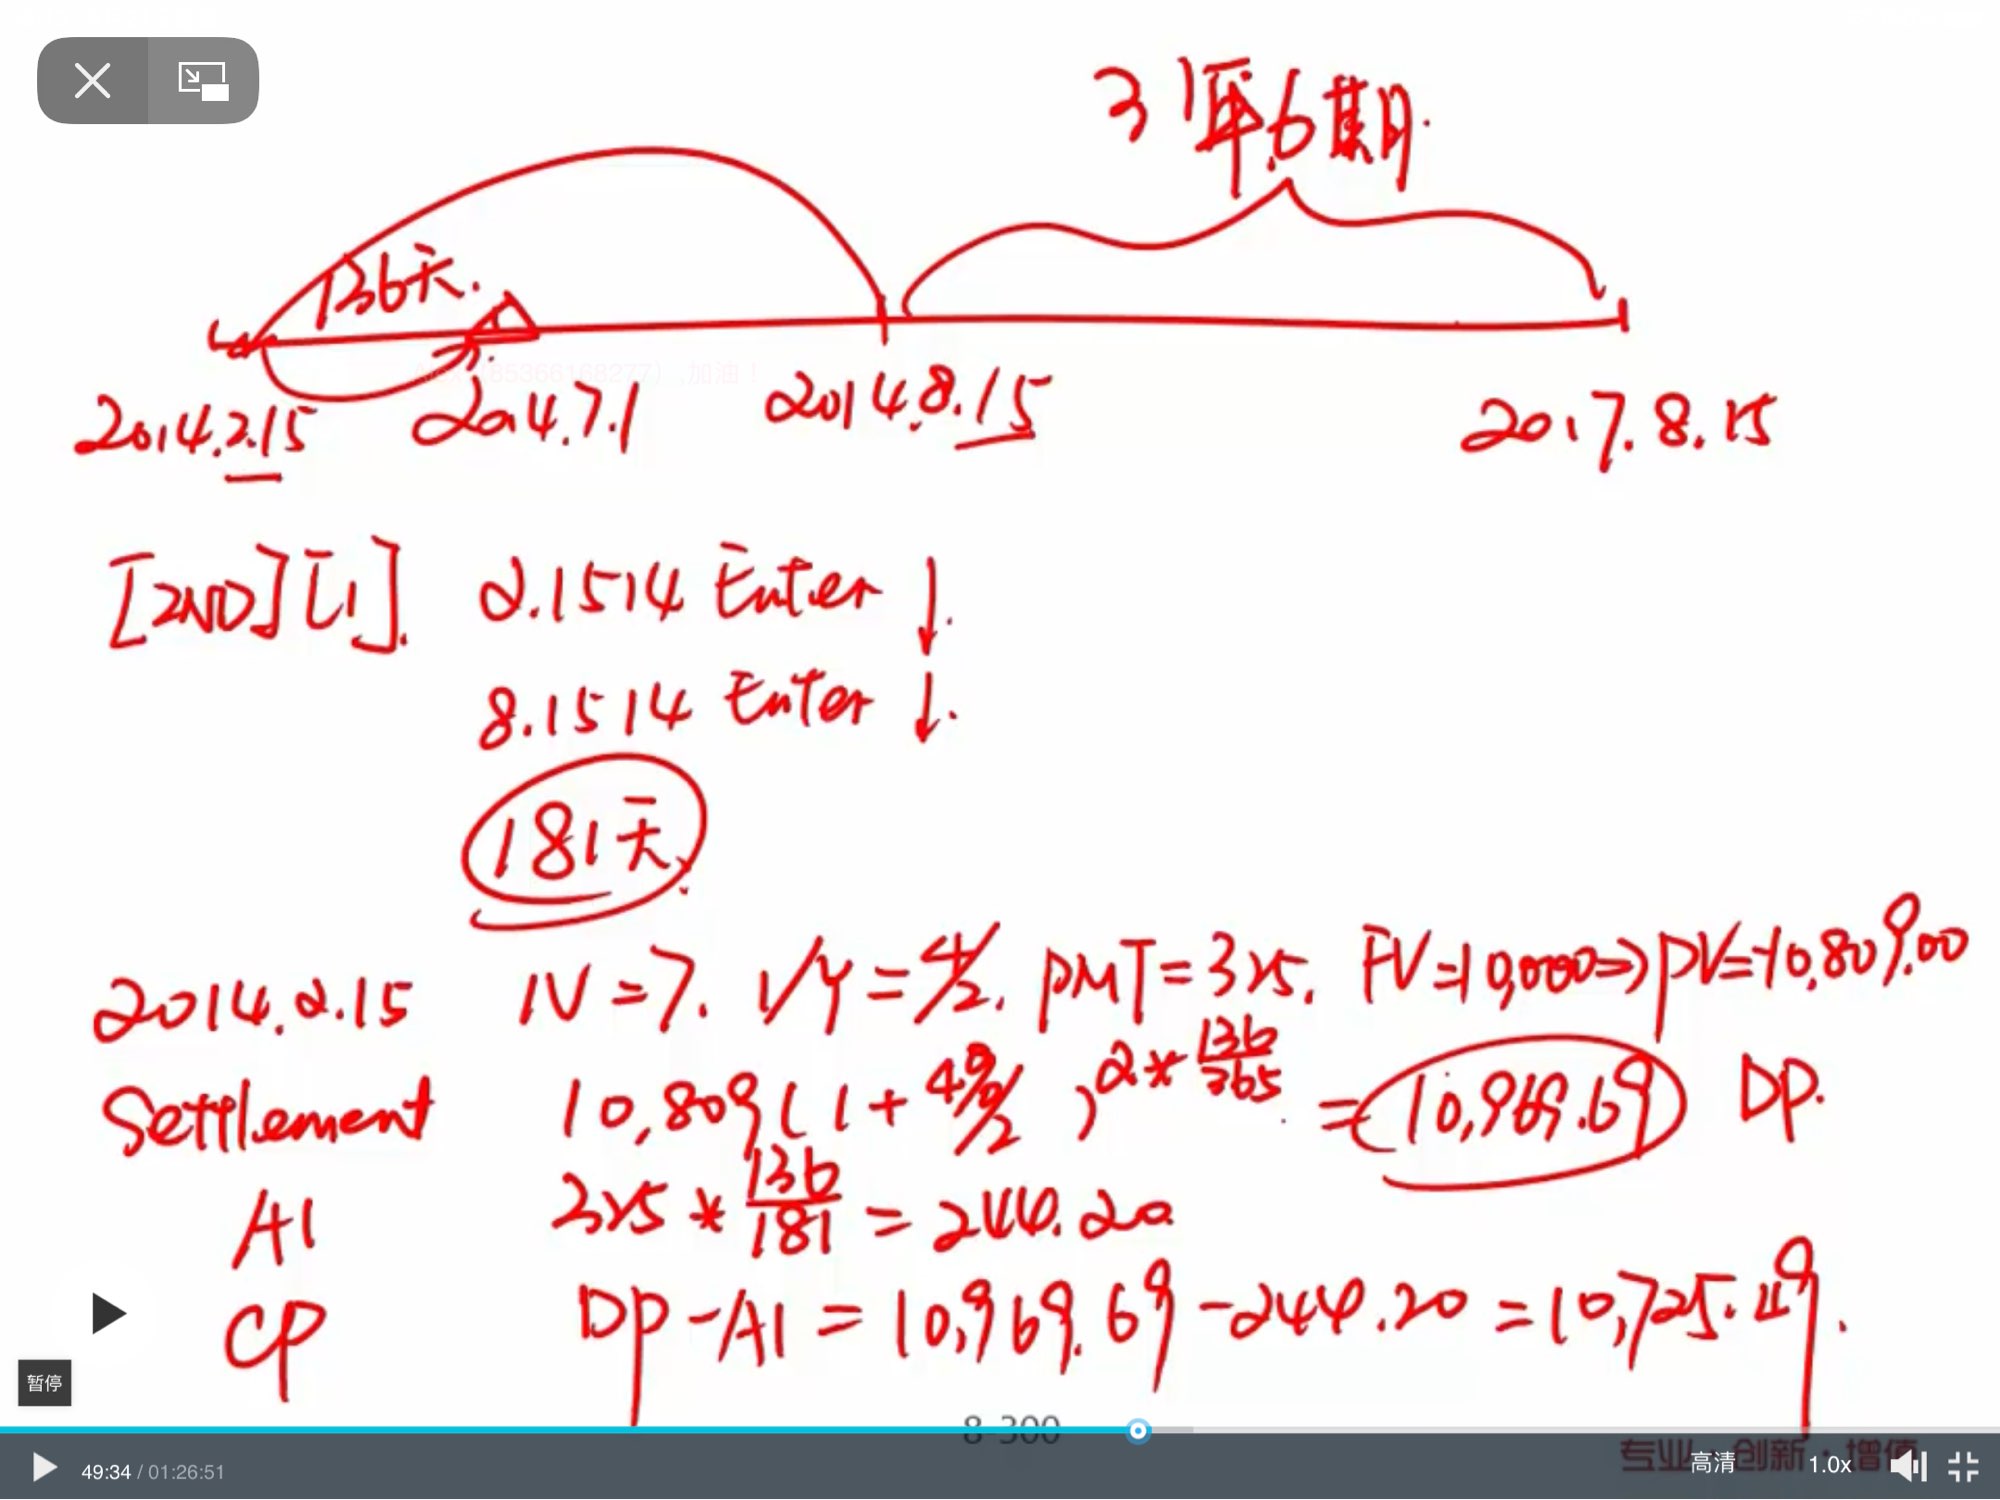 3年.6期.
136天.
(85366168277),加油!
2014.2.15 2014.7.1 2014.8.15 2017.8.15
[2ND][1]. 2.1514 Enter ↓.
8.1514 Enter ↓.
181天.
2014.2.15 N=7. I/Y=4/2. PMT=325. FV=10,000⇒PV=-10,809.00
Settlement 10,809(1+4%/2)^2*136/365=10,969.69 DP.
AI 325*136/181=244.20
CP DP-AI=10,969.69-244.20=10,725.49.
暂停
8-300
专业·创新·增值
49:34 / 01:26:51 高清 1.0x